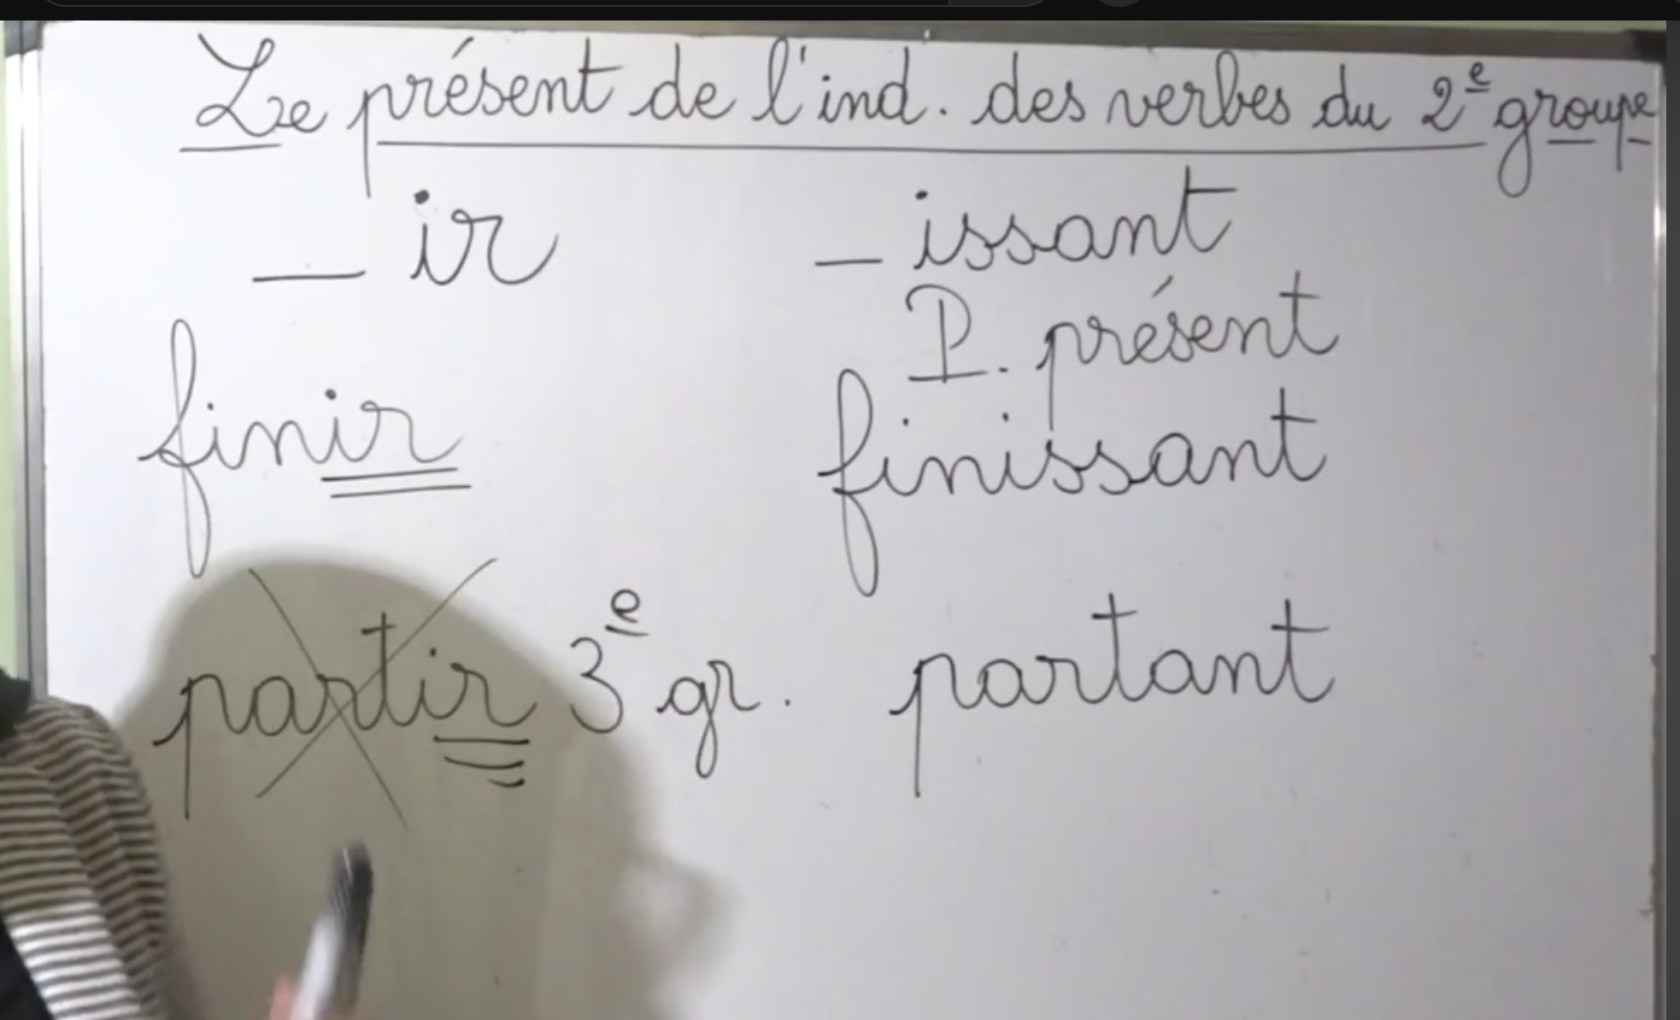 Le présent de l'ind. des verbes du 2e groupe
_ ir _ issant
P. présent
finir finissant
partir 3e gr. partant